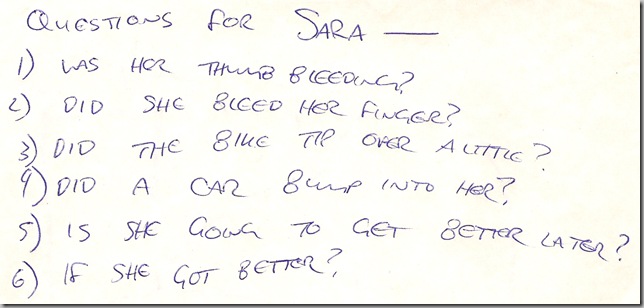 QUESTIONS FOR SARA —
1) WAS HER THUMB BLEEDING?
2) DID SHE BLEED HER FINGER?
3) DID THE BIKE TIP OVER A LITTLE?
4) DID A CAR BUMP INTO HER?
5) IS SHE GOING TO GET BETTER LATER?
6) IF SHE GOT BETTER?